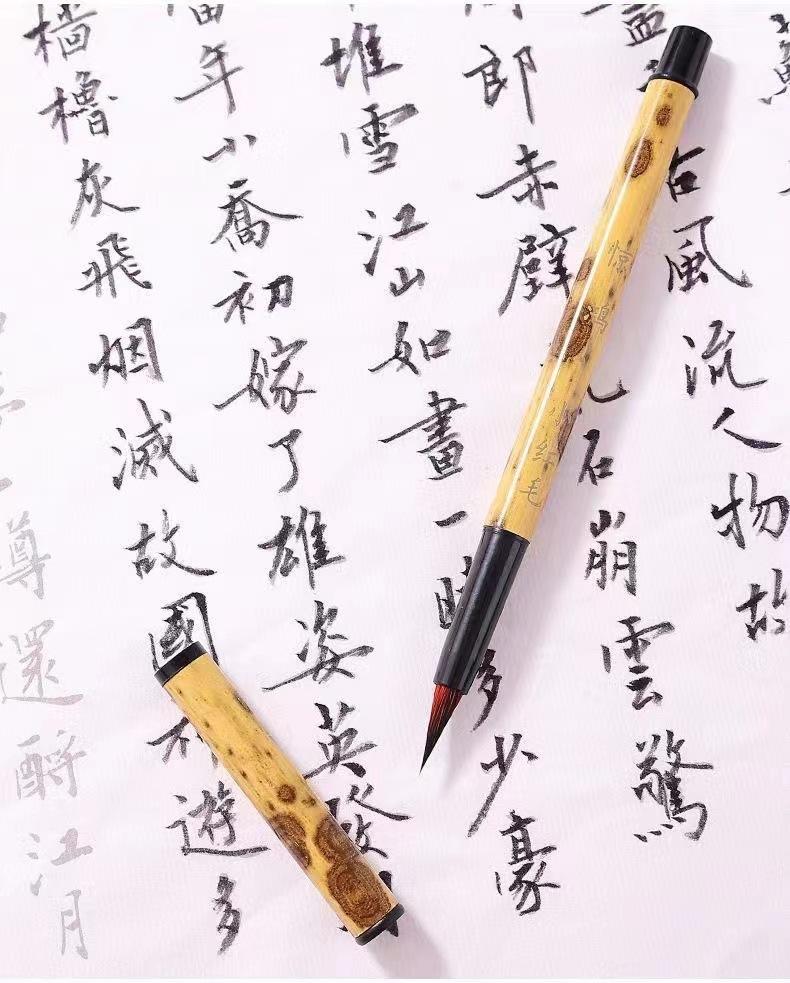 古風流人物故
郎赤壁石崩雲驚
堆雪江山如畫一時多少豪
年小喬初嫁了雄姿英發
檣櫓灰飛烟滅故國遊多
樽還酹江月
惊鸿
红毛